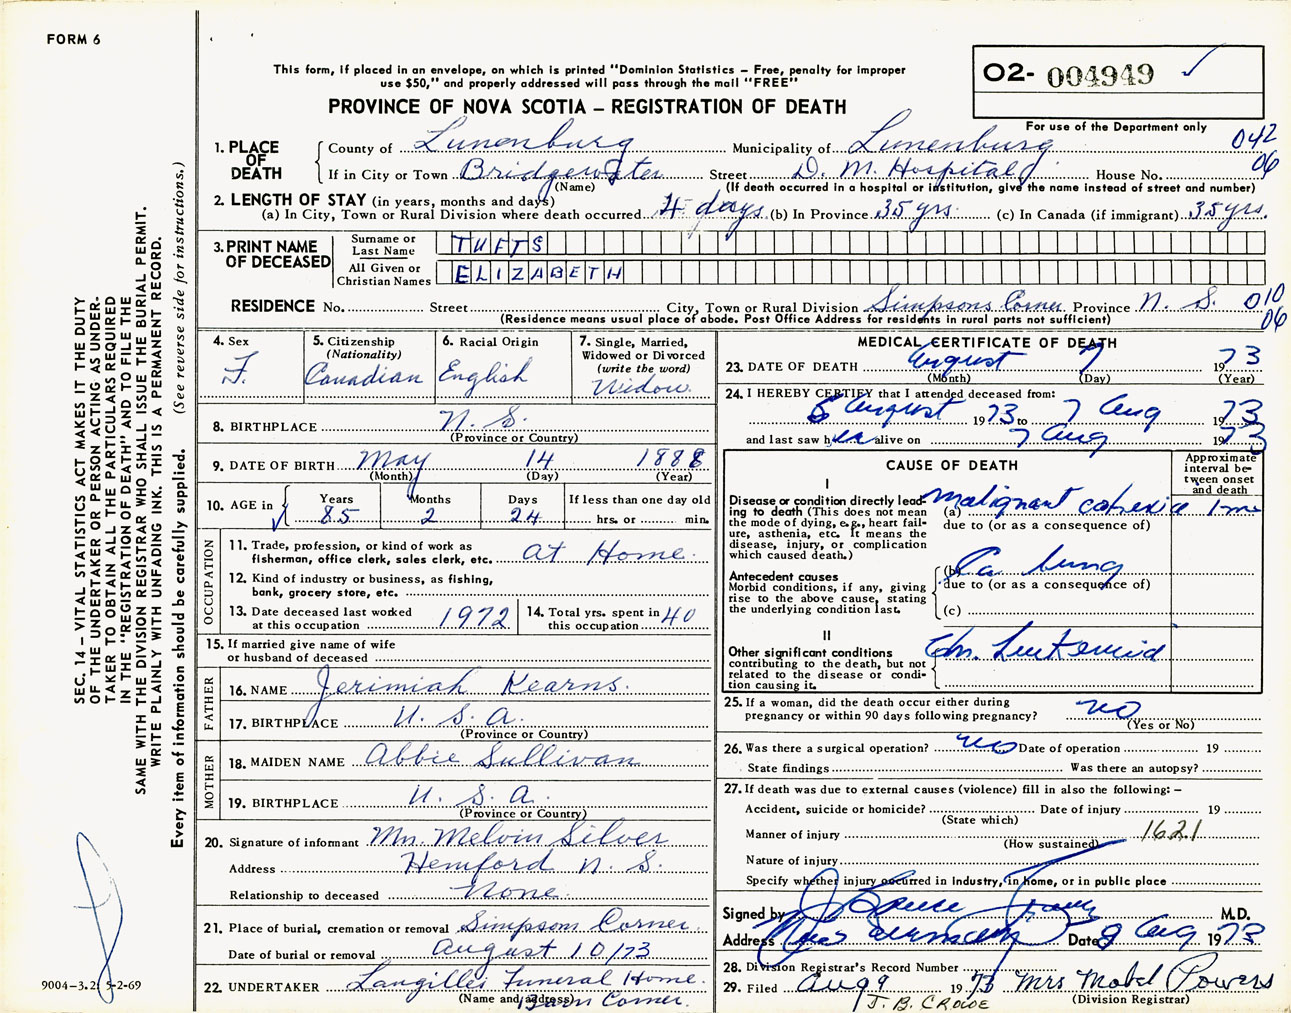 FORM 6
This form, if placed in an envelope, on which is printed "Dominion Statistics – Free, penalty for improper
use $50," and properly addressed will pass through the mail "FREE"
PROVINCE OF NOVA SCOTIA – REGISTRATION OF DEATH
O2- 004949 ✓
For use of the Department only
042
06
1. PLACE OF DEATH
County of Lunenburg Municipality of Lunenburg
If in City or Town Bridgewater Street D. M. Hospital House No.
(Name) (If death occurred in a hospital or institution, give the name instead of street and number)
2. LENGTH OF STAY (in years, months and days)
(a) In City, Town or Rural Division where death occurred 4 days (b) In Province 35 yrs. (c) In Canada (if immigrant) 35 yrs.
3. PRINT NAME OF DECEASED
Surname or Last Name TUFTS
All Given or Christian Names ELIZABETH
RESIDENCE No. Street City, Town or Rural Division Simpsons Corner Province N. S. 010
06
(Residence means usual place of abode. Post Office Address for residents in rural parts not sufficient)
4. Sex
F.
5. Citizenship
(Nationality)
Canadian
6. Racial Origin
English
7. Single, Married,
Widowed or Divorced
(write the word)
Widow
8. BIRTHPLACE N. S.
(Province or Country)
9. DATE OF BIRTH May 14 1888
(Month) (Day) (Year)
10. AGE in
Years Months Days If less than one day old
85 2 24 hrs. or min.
OCCUPATION
11. Trade, profession, or kind of work as
fisherman, office clerk, sales clerk, etc. at Home
12. Kind of industry or business, as fishing,
bank, grocery store, etc.
13. Date deceased last worked
at this occupation 1972
14. Total yrs. spent in
this occupation 40
15. If married give name of wife
or husband of deceased
FATHER
16. NAME Jerimiah Kearns.
17. BIRTHPLACE U. S. A.
(Province or Country)
MOTHER
18. MAIDEN NAME Abbie Sullivan
19. BIRTHPLACE U. S. A.
(Province or Country)
20. Signature of informant Melvin Silver
Address Hemford N. S.
Relationship to deceased None.
21. Place of burial, cremation or removal Simpson Corner.
Date of burial or removal August 10/73
22. UNDERTAKER Langilles Funeral Home.
(Name and address)
Barss Corner.
MEDICAL CERTIFICATE OF DEATH
23. DATE OF DEATH August 7 1973
(Month) (Day) (Year)
24. I HEREBY CERTIFY that I attended deceased from:
5 August 1973 to 7 Aug 1973
and last saw her alive on 7 Aug 1973
CAUSE OF DEATH
Approximate
interval be-
tween onset
and death
I
Disease or condition directly lead-
ing to death (This does not mean
the mode of dying, e.g., heart fail-
ure, asthenia, etc. It means the
disease, injury, or complication
which caused death.)
(a) Malignant
due to (or as a consequence of)
Antecedent causes
Morbid conditions, if any, giving
rise to the above cause, stating
the underlying condition last.
(b) Ca lung
due to (or as a consequence of)
(c)
II
Other significant conditions
contributing to the death, but not
related to the disease or condi-
tion causing it.
Chr. Leukemia
25. If a woman, did the death occur either during
pregnancy or within 90 days following pregnancy? no
(Yes or No)
26. Was there a surgical operation? no Date of operation 19
State findings Was there an autopsy?
27. If death was due to external causes (violence) fill in also the following: –
Accident, suicide or homicide? Date of injury 19
(State which)
Manner of injury 1621
(How sustained)
Nature of injury
Specify whether injury occurred in industry, in home, or in public place
Signed by M.D.
Address Date 8 Aug 1973
28. Division Registrar's Record Number
29. Filed Aug 9 1973 Mrs Mabel Powers
J. B. CROWE (Division Registrar)
SEC. 14 – VITAL STATISTICS ACT MAKES IT THE DUTY
OF THE UNDERTAKER OR PERSON ACTING AS UNDER-
TAKER TO OBTAIN ALL THE PARTICULARS REQUIRED
IN THE "REGISTRATION OF DEATH" AND TO FILE THE
SAME WITH THE DIVISION REGISTRAR WHO SHALL ISSUE THE BURIAL PERMIT.
WRITE PLAINLY WITH UNFADING INK. THIS IS A PERMANENT RECORD.
Every item of information should be carefully supplied. (See reverse side for instructions.)